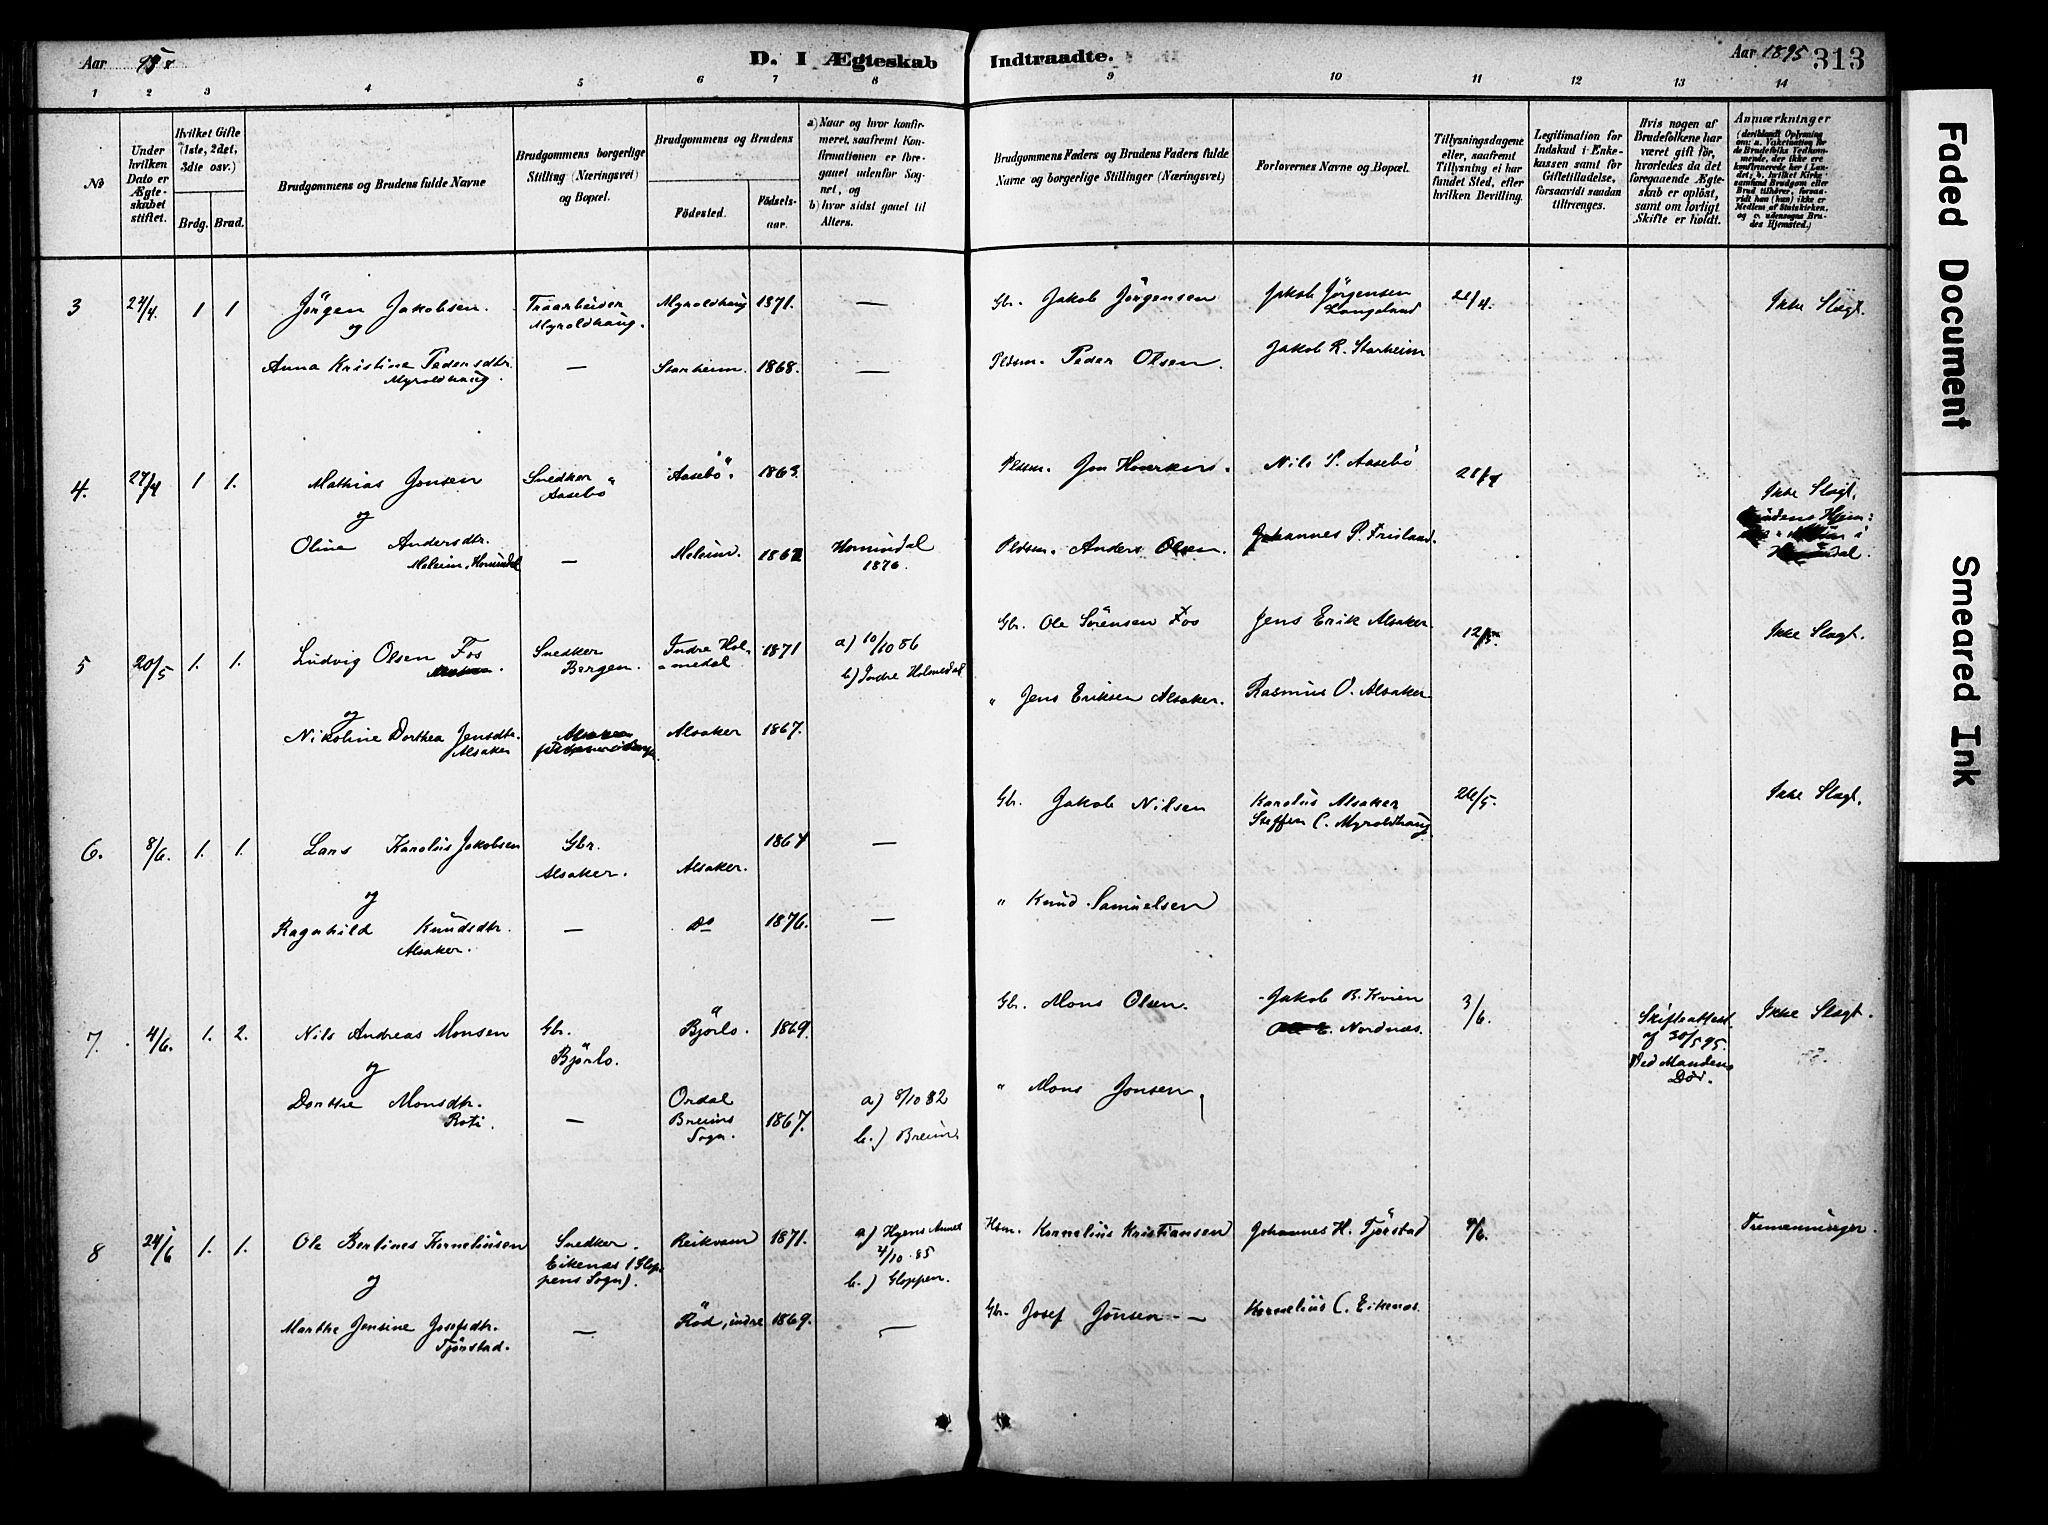 Aar 95
D. I Ægteskab Indtraadte.
Aar 1895
313
1 2 3 4 5 6 7 8 9 10 11 12 13 14
No
Under hvilken Dato er Ægteskabet stiftet.
Hvilket Gifte (1ste, 2det, 3die osv.)
Brdg. Brud.
Brudgommens og Brudens fulde Navne
Brudgommens borgerlige Stilling (Næringsvei) og Bopæl.
Brudgommens og Brudens
Fødested. Fødselsaar.
a) Naar og hvor konfirmeret, saafremt Konfirmationen er foregaaet udenfor Sognet, og
b) hvor sidst gaaet til Alters.
Brudgommens Faders og Brudens Faders fulde Navne og borgerlige Stillinger (Næringsvei)
Forlovernes Navne og Bopæl.
Tillysningsdagene eller, saafremt Tillysning ei har fundet Sted, efter hvilken Bevilling.
Legitimation for Indskud i Enkekassen samt for Giftetilladelse, forsaavidt saadan tiltrænges.
Hvis nogen af Brudefolkene har været gift før, hvorledes da det foregaaende Ægteskab er opløst, samt om lovligt Skifte er holdt.
Anmærkninger
(deriblandt Oplysning om: a. Vakcination for de Brudefolks Vedkommende, der ikke ere konfirmerede her i Landet; b. hvilket Kirkesamfund Brudgom eller Brud tilhører, forsaavidt han (hun) ikke er Medlem af Statskirken, og c. udensogns Brudes Hjemsted.)
3 24/4. 1 1 Jörgen Jakobsen. Træarbeider Myroldhaug. Myroldhaug 1871. — Gbr. Jakob Jörgensen Jakob Jörgensen Langeland 21/4. Ikke Slægt.
og
Anna Kristine Pedersdtr. Myroldhaug. — Starheim. 1868. — Pldsm. Peder Olsen. Jakob R. Starheim
4. 27/4 1 1. Mathias Jonsen Snedker Aasebö Aasebö 1863. Pldsm. Jon Nils S. Aasebö 21/4 Ikke Slægt.
og
Oline Andersdtr. Meleim, Hornindal — Meleim. 1862 Hornindal 1876. Pldsm. Anders Olsen. Johannes P. Frisland.
5 20/5 1. 1. Ludvig Olsen Fos Snedker Bergen. Indre Holmedal 1871 a) 10/10 86 b) Indre Holmedal Gbr. Ole Sörensen Fos Jens Erik Alsaker 12/5. Ikke Slægt.
og
Nikoline Dorthea Jensdtr. Alsaker Alsaker 1867. " Jens Eriksen Alsaker. Rasmus O. Alsaker
6. 8/6. 1. 1. Lars Karolus Jakobsen Gbr. Alsaker. Alsaker. 1864 — Gbr. Jakob Nilsen Karolus Alsaker Steffen C. Myroldhaug 26/5. Ikke Slægt.
og
Ragnhild Knudsdtr. Alsaker. — do 1876. — " Knud Samuelsen
7. 4/6. 1. 2. Nils Andreas Monsen Gbr. Björlo. Björlo. 1869. Gbr. Mons Olsen. Jakob B. Kvien Nordnæs. 3/6. Skifteattest af 30/5 95. Ved Mandens Död. Ikke Slægt.
og
Dorthe Monsdtr. Roti. — Ordal Breims Sogn. 1867. a) 8/10 82 b.) Breim. " Mons Jonsen
8 24/6 1. 1. Ole Bertines Korneliusen Snedker. Eikenæs (Gloppens Sogn). Reikvam 1871. a) Hyens Annex 4/10. 85 b.) Gloppen. Hsm. Kornelius Kristiansen Johannes H. Tjörstad 9/6. Tremenninger.
og
Marthe Jensine Josefsdtr. Tjörstad. — Röd, indre 1869. — Gbr. Josef Jonsen — Kornelius C. Eikenæs.
Faded Document
Smeared Ink